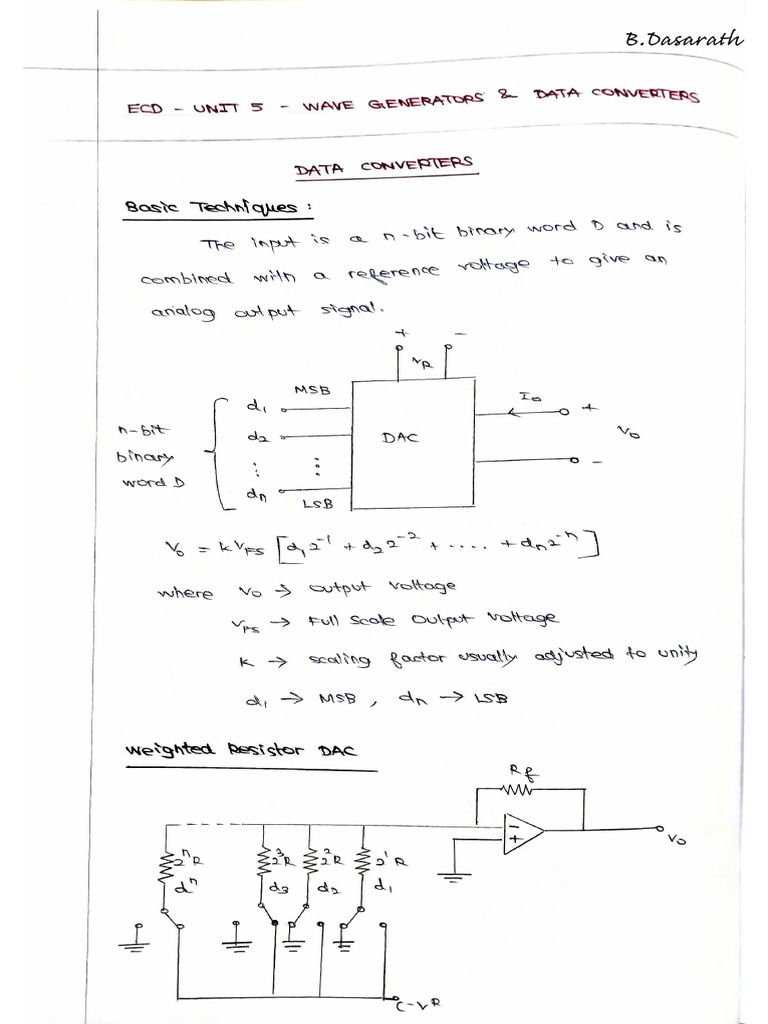 B.Dasarath
ECD - UNIT 5 - WAVE GENERATORS & DATA CONVERTERS
DATA CONVERTERS
Basic Techniques :
The input is a n-bit binary word D and is
combined with a reference voltage to give an
analog output signal.
+ -
VR
MSB
d1
d2
⋮ ⋮
dn
LSB
n-bit
binary
word D
DAC
Io
+
Vo
-
Vo = k VFS [d1 2^-1 + d2 2^-2 + .... + dn 2^-n]
where Vo → output voltage
VFS → Full Scale Output Voltage
K → scaling factor usually adjusted to unity
d1 → MSB , dn → LSB
Weighted Resistor DAC
Rf
-
+
Vo
2^n R 2^3 R 2^2 R 2^1 R
d^n d3 d2 d1
(-VR